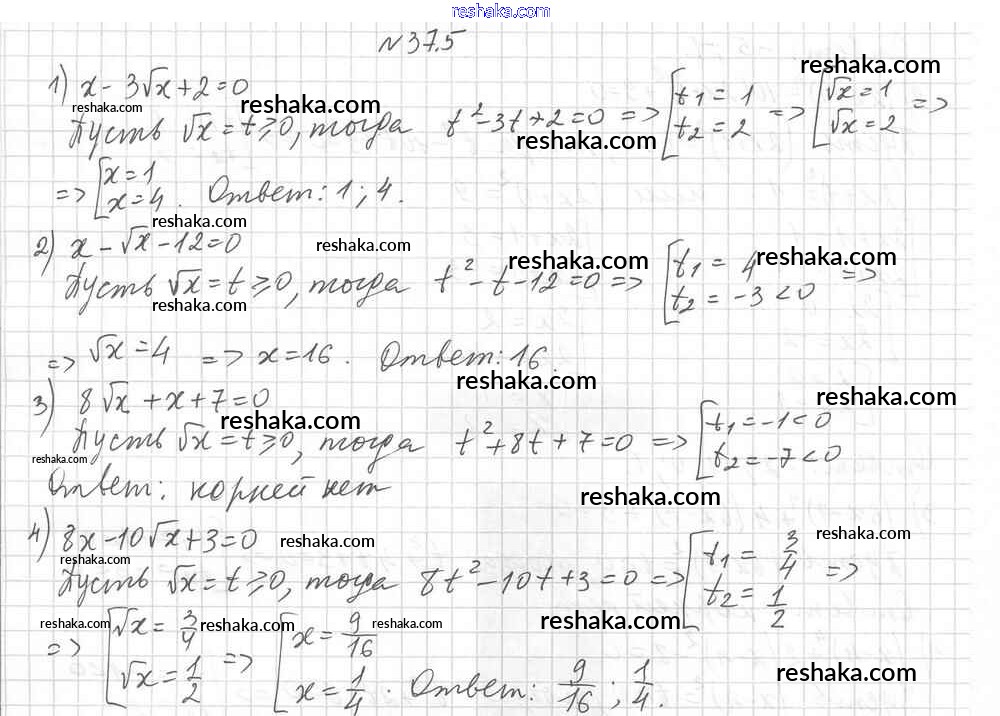 reshaka.com
№37.5
1) x - 3√x + 2 = 0
reshaka.com reshaka.com reshaka.com
Пусть √x = t ≥ 0, тогда t² - 3t + 2 = 0 => [t₁ = 1 t₂ = 2 => [√x = 1 √x = 2 =>
reshaka.com
=> [x = 1 x = 4. Ответ: 1; 4.
reshaka.com
2) x - √x - 12 = 0
reshaka.com
Пусть √x = t ≥ 0, тогда t² - t - 12 = 0 => [t₁ = 4 t₂ = -3 < 0 =>
reshaka.com reshaka.com reshaka.com
=> √x = 4 => x = 16. Ответ: 16.
reshaka.com
3) 8√x + x + 7 = 0
reshaka.com reshaka.com
Пусть √x = t ≥ 0, тогда t² + 8t + 7 = 0 => [t₁ = -1 < 0 t₂ = -7 < 0
reshaka.com
Ответ: корней нет
reshaka.com
4) 8x - 10√x + 3 = 0
reshaka.com reshaka.com reshaka.com
Пусть √x = t ≥ 0, тогда 8t² - 10t + 3 = 0 => [t₁ = 3/4 t₂ = 1/2 =>
reshaka.com reshaka.com reshaka.com reshaka.com
=> [√x = 3/4 √x = 1/2 => [x = 9/16 x = 1/4. Ответ: 9/16; 1/4.
reshaka.com